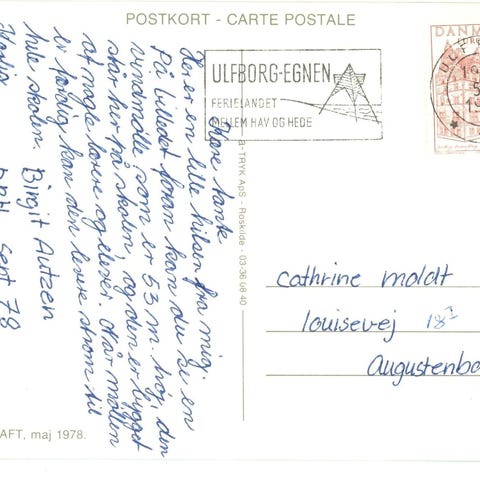 POSTKORT - CARTE POSTALE
ULFBORG-EGNEN
FERIELANDET
MELLEM HAV OG HEDE
DANM
19
5
Kære tante
Her er en lille hilsen fra mig.
På billedet foran kan du se en
vindmølle, som er 53 m. høj, den
står her på skolen, og den er bygget
af nogle lærere og elever. Når møllen
er færdig kan den levere strøm til
hele skolen. Birgit Autzen
sept 78
a-TRYK ApS - Roskilde - 03-36 08 40
Cathrine Moldt
Louisevej 18
Augustenbo
AFT, maj 1978.